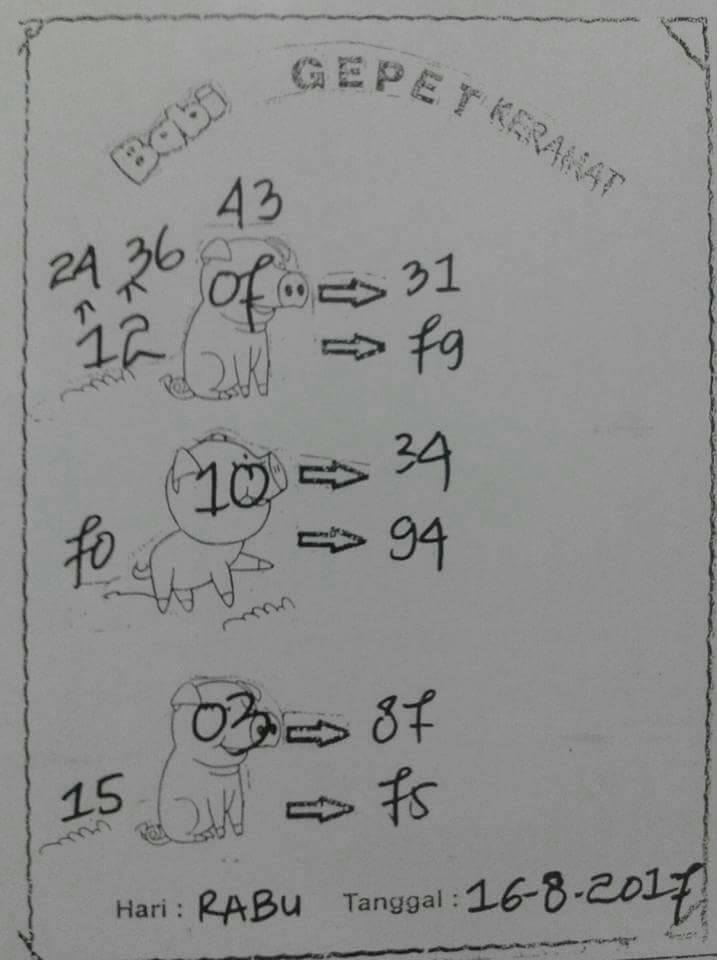 Babi GEPET KERAMAT
43
24 36
07 31
12 79
10 34
70 94
03 87
15 75
Hari : RABU Tanggal : 16-8-2017